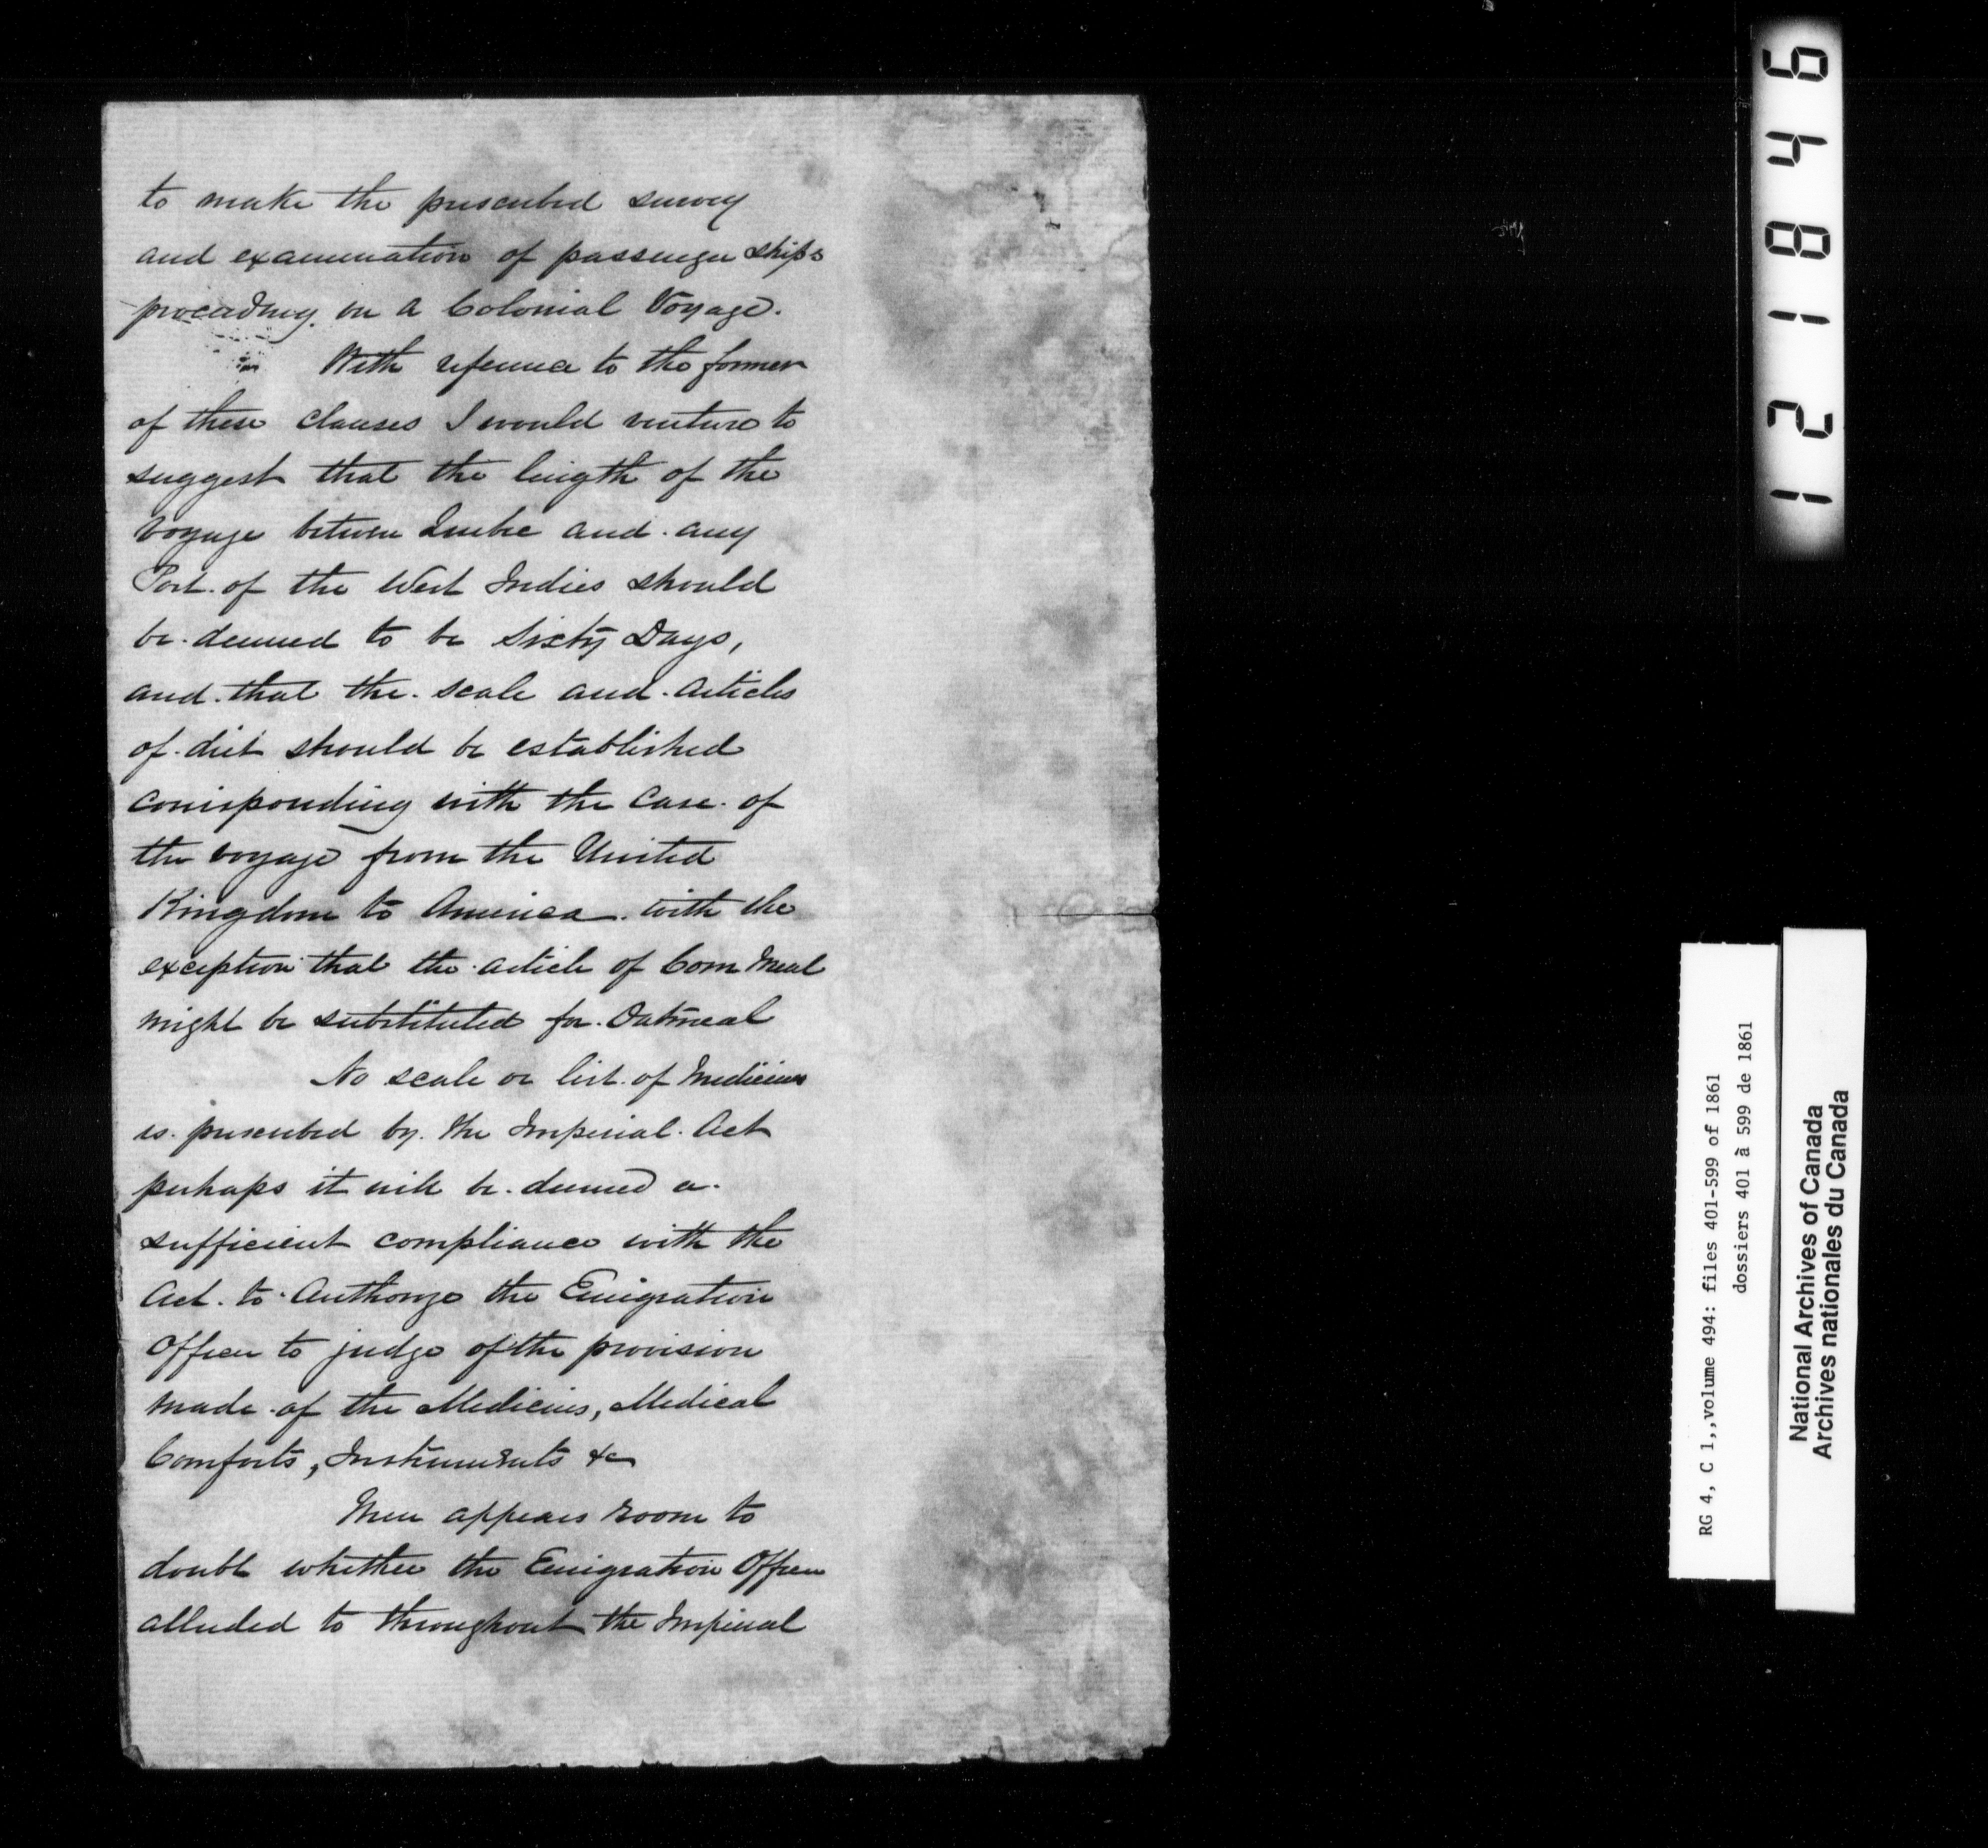 to make the prescribed survey
and examination of passenger ships
proceeding on a Colonial Voyage.
With reference to the former
of these clauses I would venture to
suggest that the length of the
voyage between Quebec and any
Port of the West Indies should
be deemed to be Sixty Days,
and that the scale and articles
of diet should be established
corresponding with the case of
the voyage from the United
Kingdom to America with the
exception that the article of Corn Meal
might be substituted for Oatmeal
No scale or list of Medicines
is prescribed by the Imperial Act
perhaps it will be deemed a
sufficient compliance with the
Act to Authorize the Emigration
Officer to judge of the provision
made of the Medicines, Medical
Comforts, Instruments &c
There appears room to
doubt whether the Emigration Officer
alluded to throughout the Imperial
121846
RG 4, C 1,,volume 494: files 401-599 of 1861
dossiers 401 à 599 de 1861
National Archives of Canada
Archives nationales du Canada